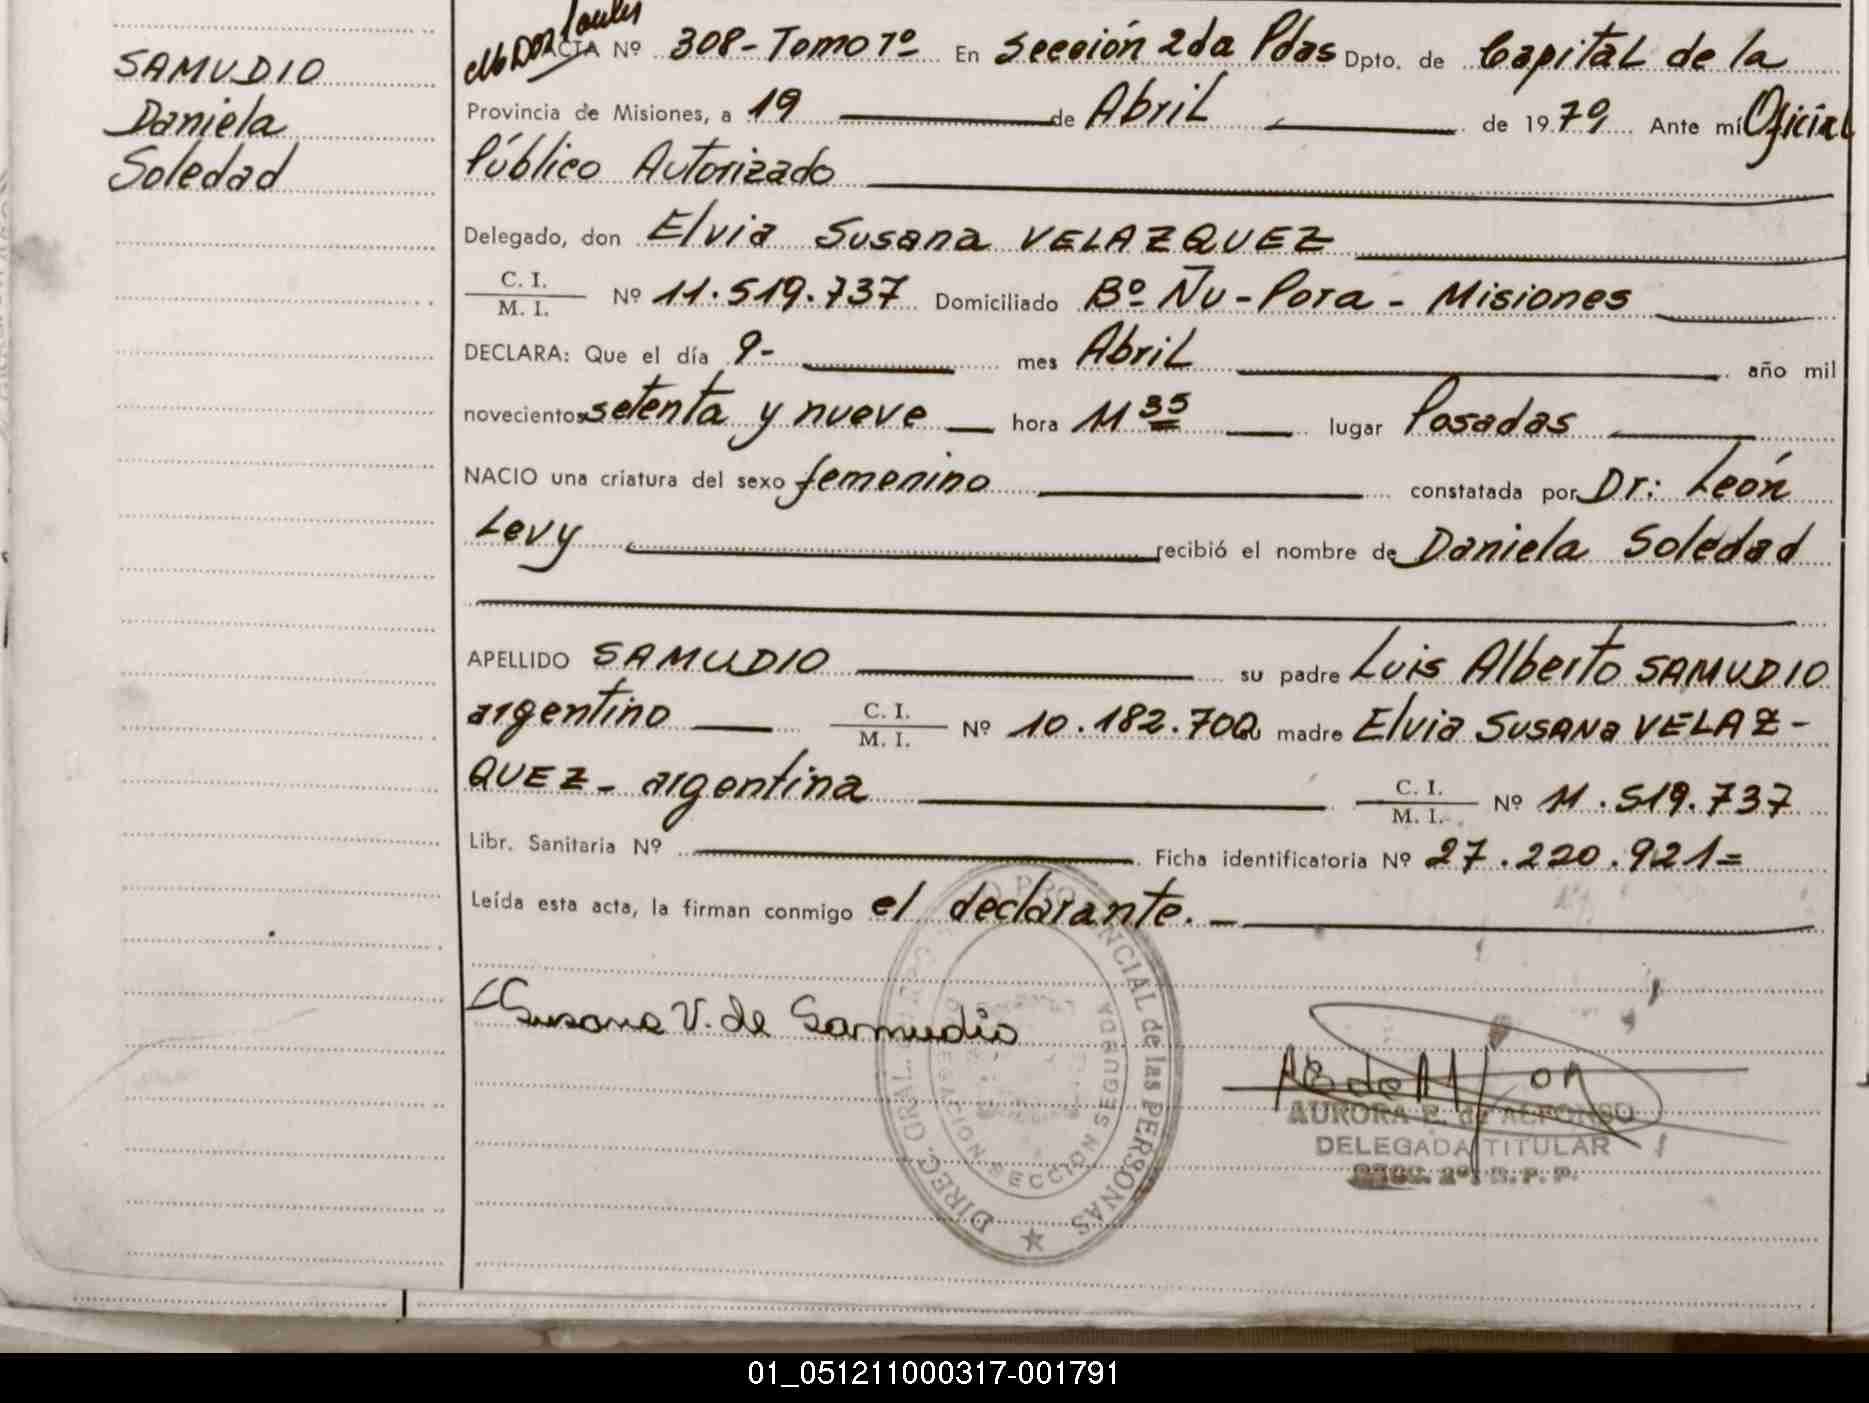 SAMUDIO
Daniela
Soledad
ACTA Nº 308- Tomo 1º En Sección 2da Pdas Dpto. de Capital de la
Provincia de Misiones, a 19 de Abril de 1979 Ante mí Oficial
Público Autorizado
Delegado, don Elvia Susana VELAZQUEZ
C. I.
M. I. Nº 11.519.737 Domiciliado Bº Ñu-Pora - Misiones
DECLARA: Que el día 9- mes Abril año mil
novecientos setenta y nueve hora 11 35 lugar Posadas
NACIO una criatura del sexo femenino constatada por Dr: León
Levy recibió el nombre de Daniela Soledad
APELLIDO SAMUDIO su padre Luis Alberto SAMUDIO
argentino C. I.
M. I. Nº 10.182.700 madre Elvia SUSANA VELAZ-
QUEZ - argentina C. I.
M. I. Nº 11.519.737
Libr. Sanitaria Nº Ficha identificatoria Nº 27.220.921=
Leída esta acta, la firman conmigo el declarante. -
Susana V. de Samudio
DIREC. GRAL. PROVINCIAL de las PERSONAS
DELEGACION SECCION SEGUNDA
AURORA E. de ALFONSO
DELEGADA TITULAR
SECC. 2ª, R. P. P.
01_051211000317-001791